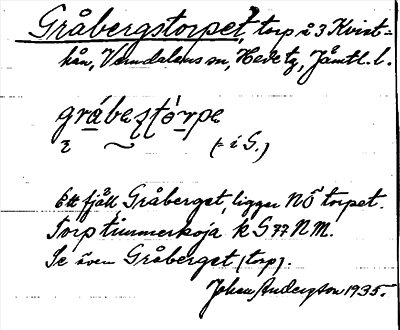 Gråbergstorpet, torp i 3 Kvist-
hån, Vemdalens sn, Hede tg, Jämtl. l.
(- i S.)
Ett fjäll Gråberget, ligger NÖ torpet.
Torp timmerkoja k S77 NM.
Se även Gråberget (torp).
Johan Anderzson 1935.